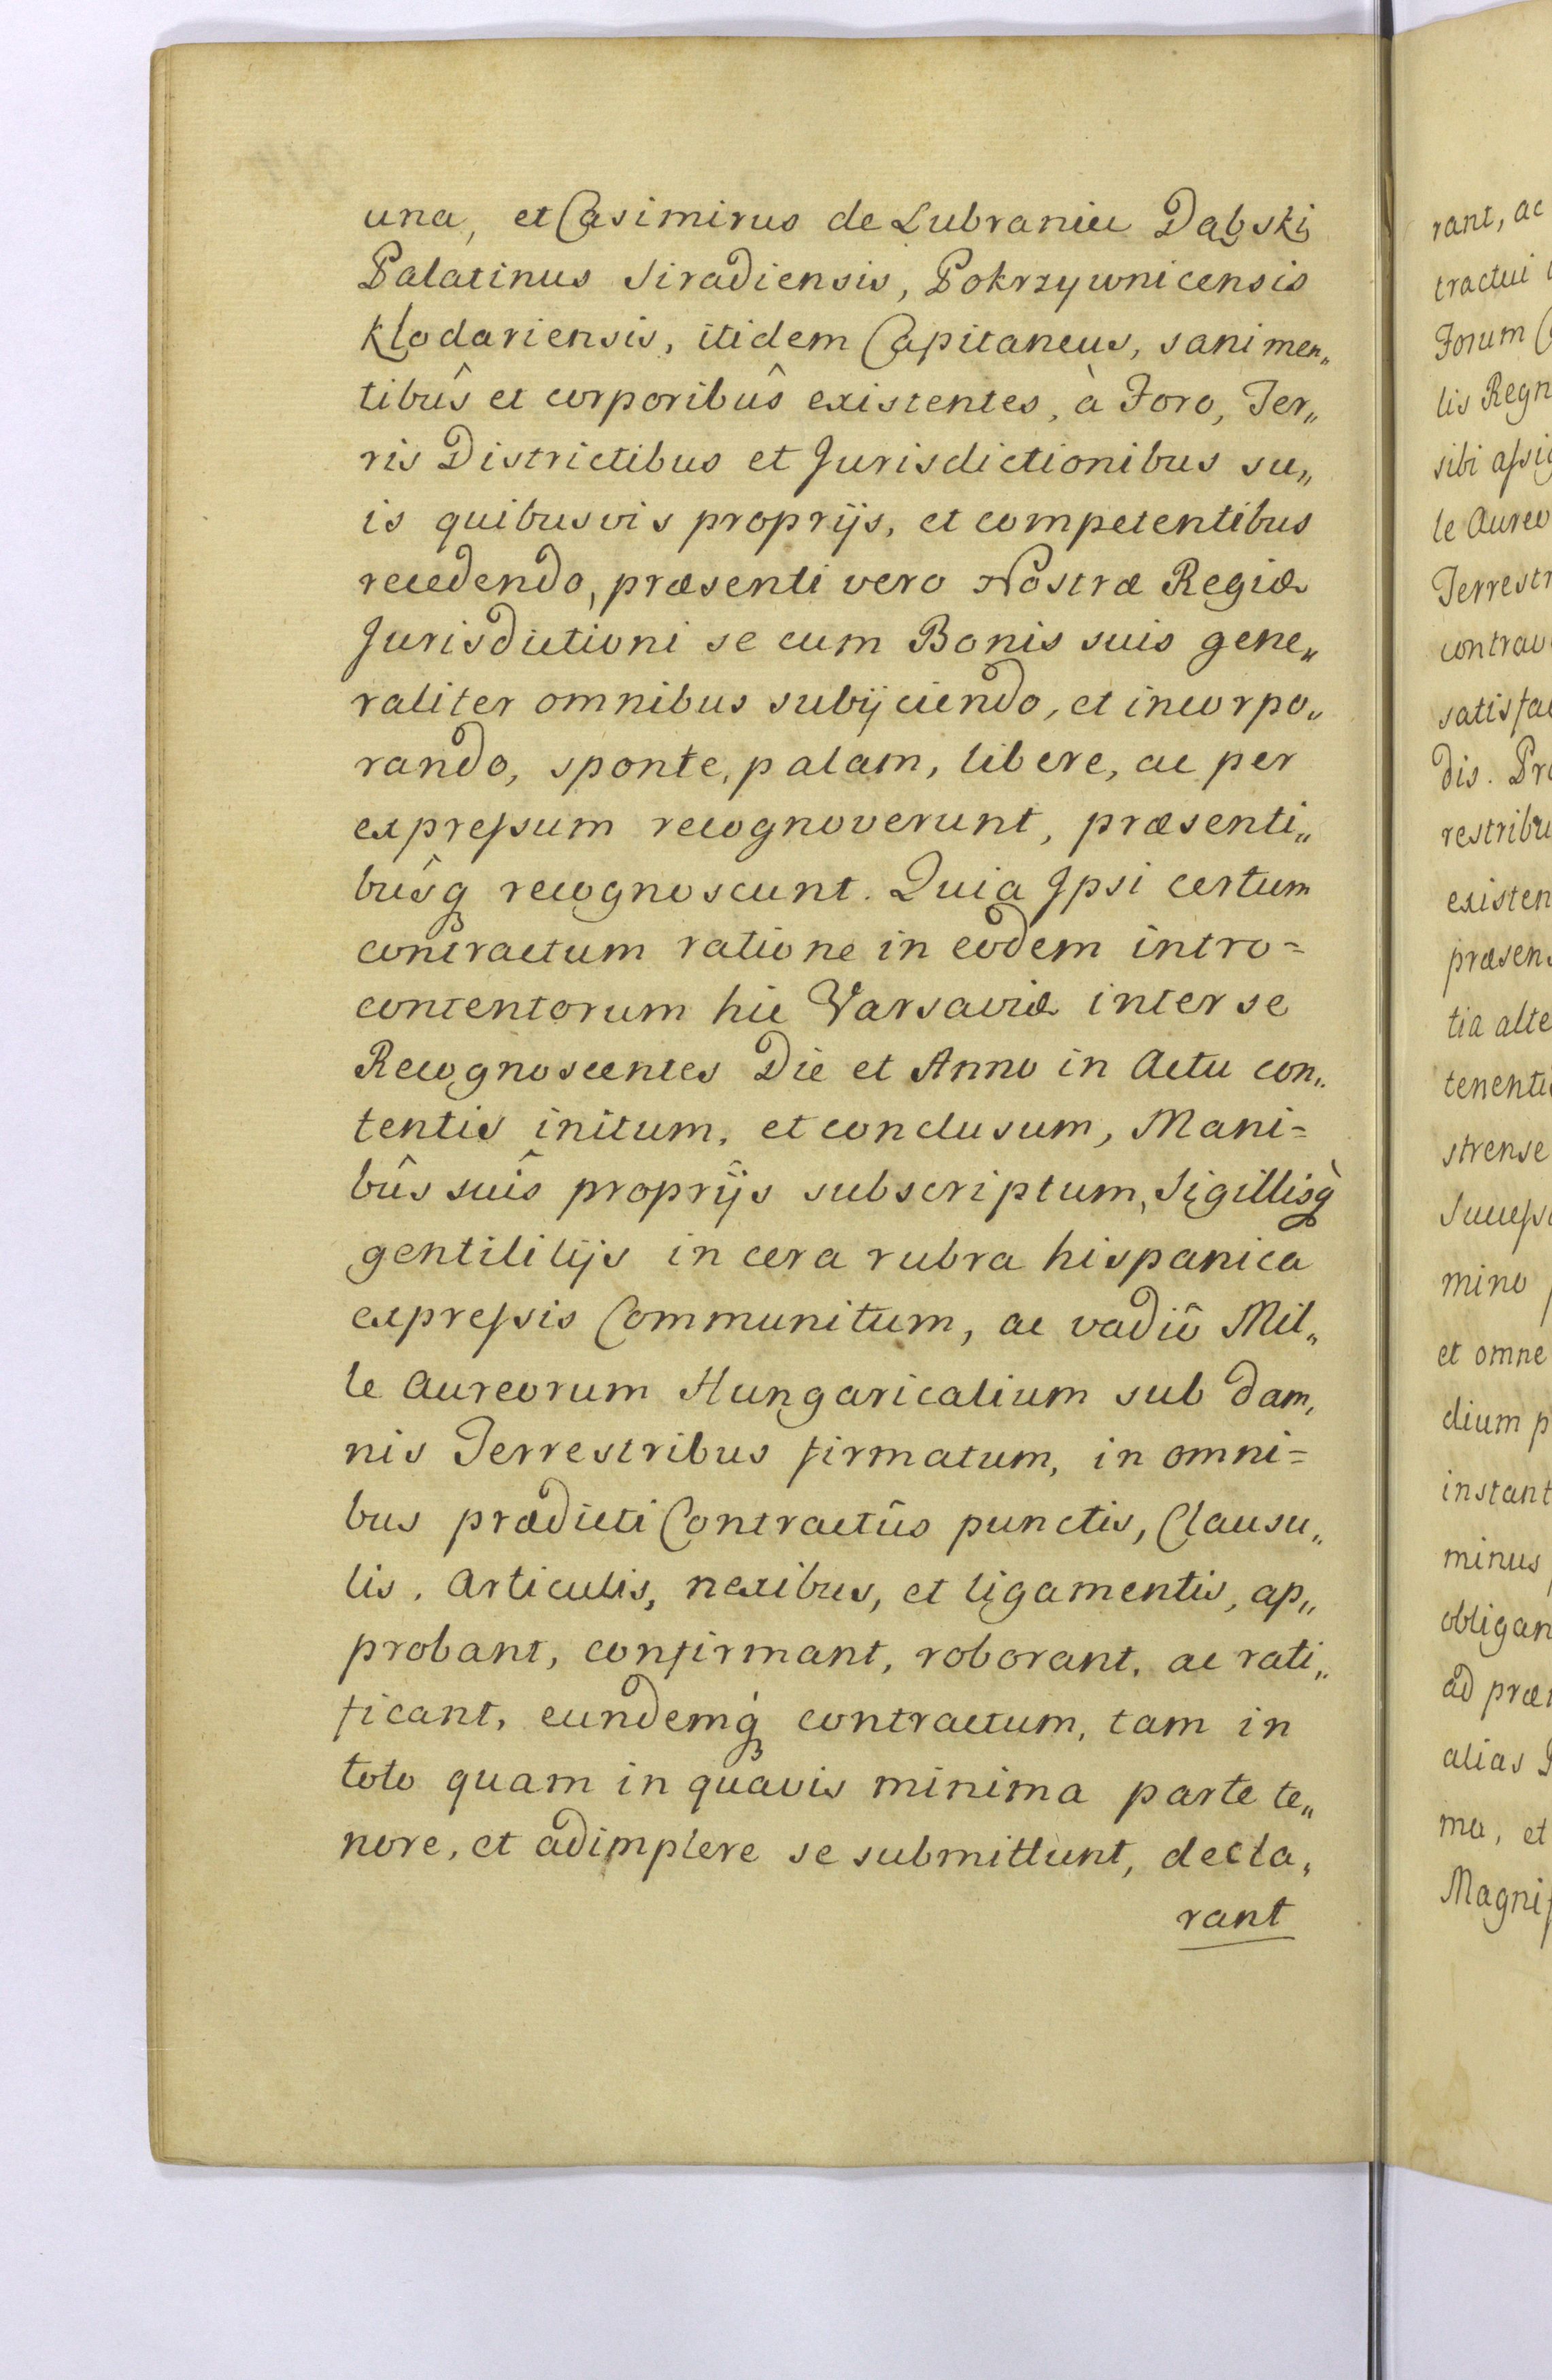 una, et Casimirus de Lubraniec Dąbski
Palatinus Siradiensis, Pokrzywnicensis
Klodaviensis, itidem Capitaneus, sani men„
tibûs et corporibûs existentes, à Foro, Ter„
ris Districtibus et Jurisdictionibus su„
is quibusvis proprijs, et competentibus
recedendo, præsenti vero Nostræ Regiæ
Jurisdictioni se cum Bonis suis gene„
raliter omnibus subijciendo, et incorpo„
rando, sponte, palam, libere, ac per
expreſsum recognoverunt, præsenti„
bûsq recognoscunt. Quia Ipsi certum
contractum ratione in eodem intro=
contentorum hic Varsaviæ inter se
Recognoscentes Die et Anno in Actu con„
tentis initum, et conclusum, Mani=
bûs suîs proprijs subscriptum, Sigillisq̀
gentilitijs in cera rubra hispanica
expreſsis Communitum, ac vadiô Mil„
le Aureorum Hungaricalium sub dam,
nis Terrestribus firmatum, in omni=
bus prædicti Contractûs punctis, Clausu„
lis, Articulis, nexibus, et ligamentis, ap„
probant, confirmant, roborant, ac rati„
ficant, eundemq̀ contractum, tam in
toto quam in quavis minima parte te„
nore, et adimplere se submittunt, decla,
rant
rant, ac
tractui
Forum
lis Regn
sibi aſsig
le Aureo
Terrestr
contrav
satisfac
dis. Pr
restribu
existen
præsen
tia alte
tenenti
strense
Succeſs
mino
et omne
dium p
instant
minus
obligan
ad præ
alias
ma, et
Magnif